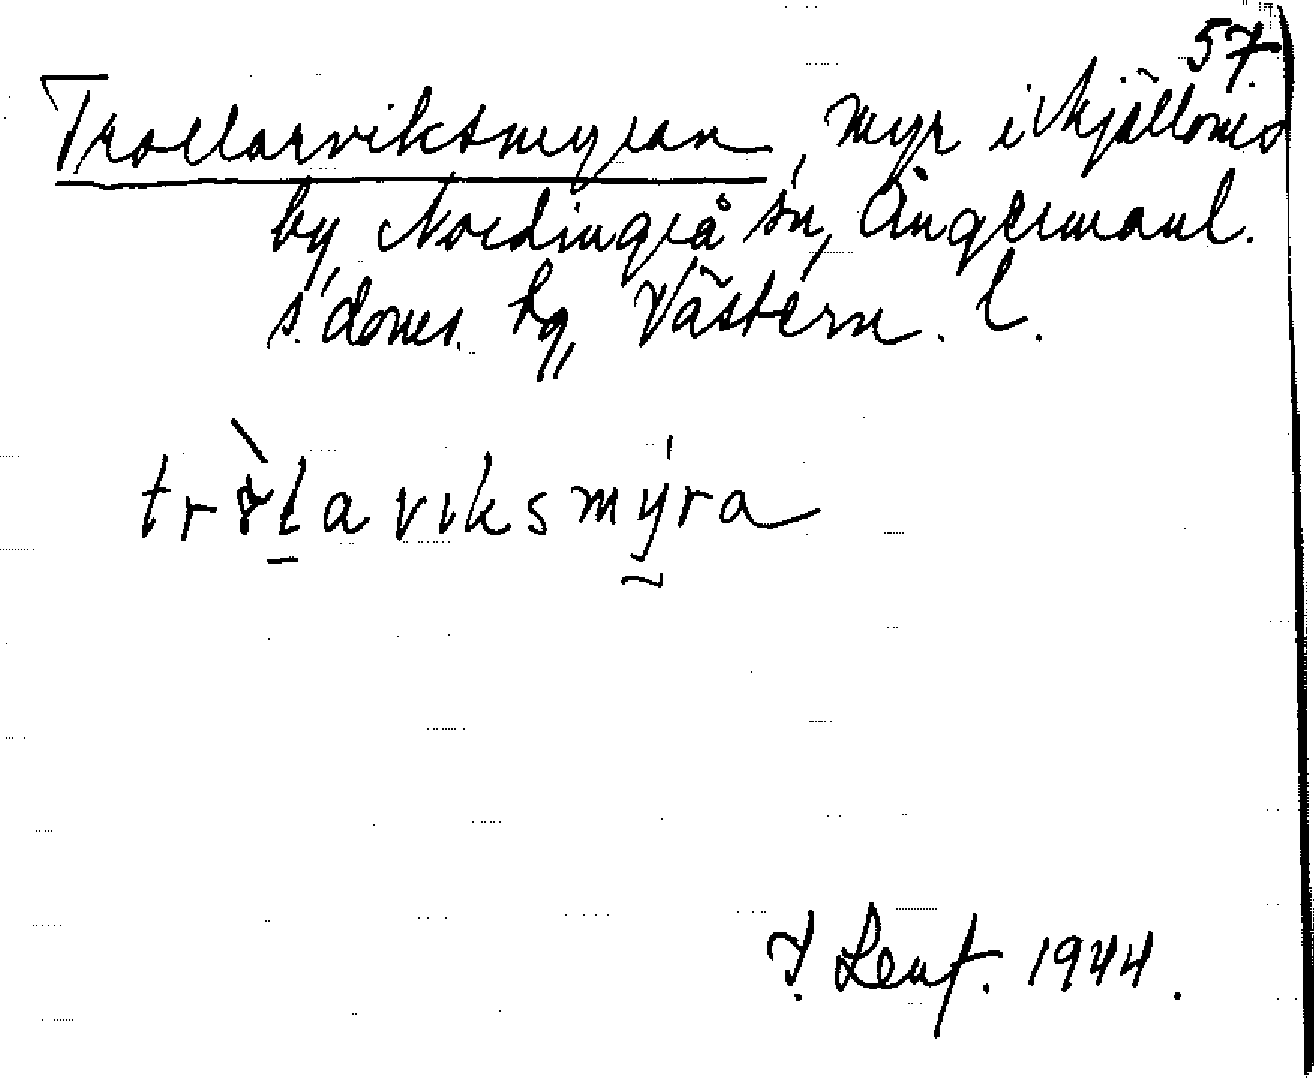 57.
Trollarviksmyran, myr i Skjällomes
by Nordingrå sn, Ångermanl.
s. doms. hg, Västern. l.
tròlaviksmýra
J. Lenf. 1944.